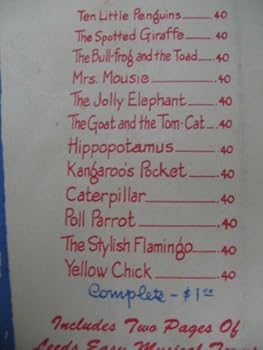 Ten Little Penguins .40
The Spotted Giraffe .40
The Bull-frog and the Toad .40
Mrs. Mousie .40
The Jolly Elephant .40
The Goat and the Tom-Cat .40
Hippopotamus .40
Kangaroo's Pocket .40
Caterpillar .40
Poll Parrot .40
The Stylish Flamingo .40
Yellow Chick .40
Complete - $1.00
Includes Two Pages Of
Leeds Easy Musical Terms